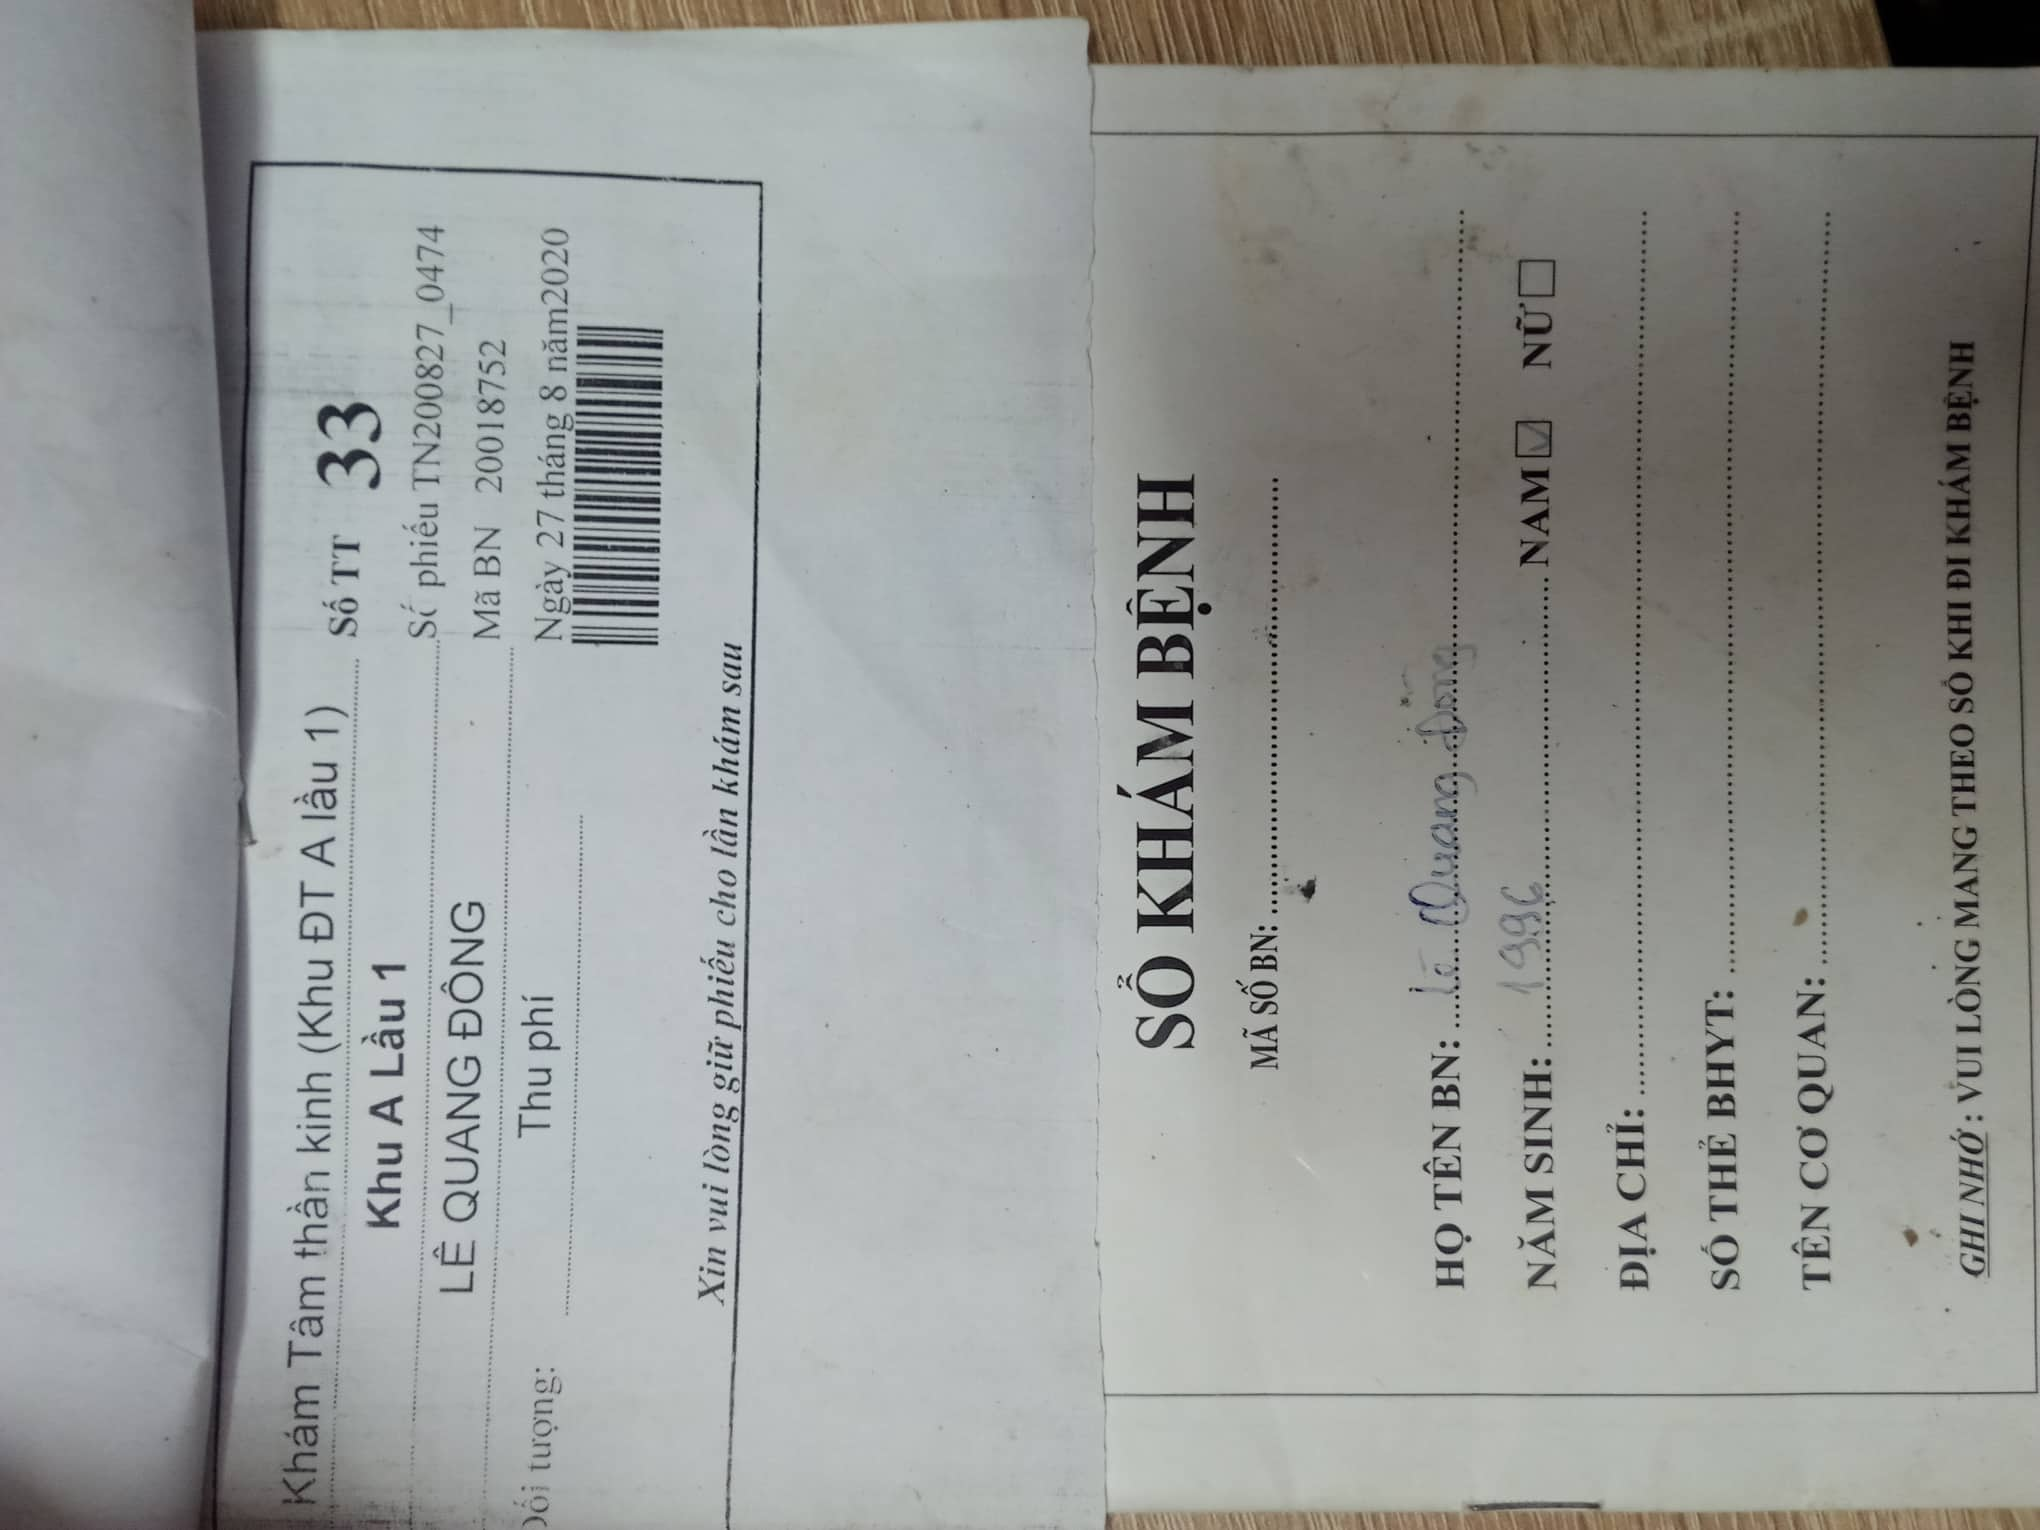 Khám Tâm thần kinh (Khu ĐT A lầu 1) Số TT 33
Khu A Lầu 1 Số phiếu TN200827_0474
LÊ QUANG ĐÔNG Mã BN 20018752
Đối tượng: Thu phí Ngày 27 tháng 8 năm2020
Xin vui lòng giữ phiếu cho lần khám sau
SỔ KHÁM BỆNH
MÃ SỐ BN:
HỌ TÊN BN: Lê Quang Đông
NĂM SINH: 1996 NAM NỮ
ĐỊA CHỈ:
SỐ THẺ BHYT:
TÊN CƠ QUAN:
GHI NHỚ: VUI LÒNG MANG THEO SỔ KHI ĐI KHÁM BỆNH